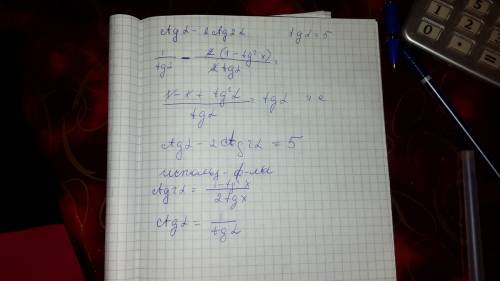 ctgα - 2ctg2α tgα = 5
1/tgα - 2(1 - tg²x)/2tgα =
(1 - 1 + tg²α)/tgα = tgα
ctgα - 2ctg2α = 5
использ-ф-лы
ctg2α = (1 - tg²x)/2tgx
ctgα = 1/tgα